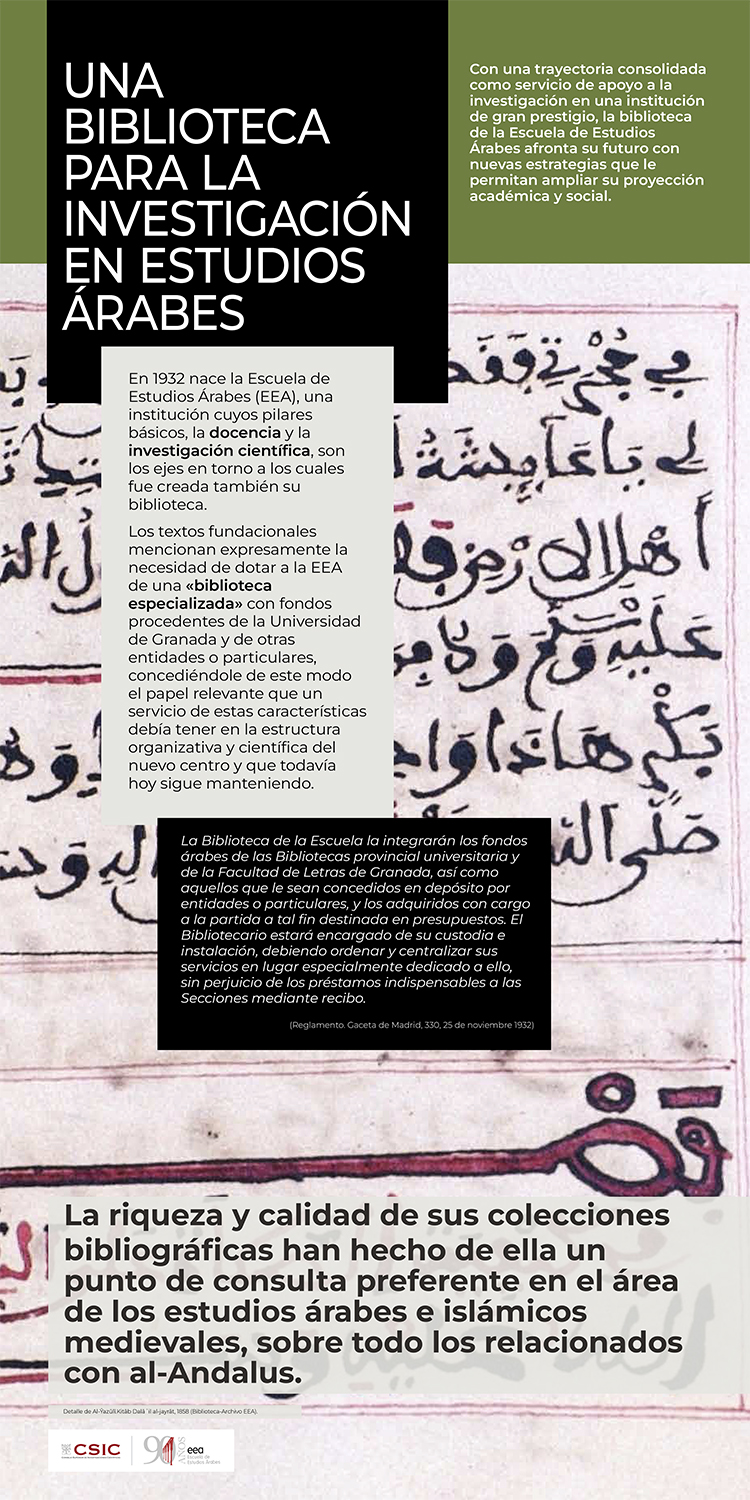 UNA
BIBLIOTECA
PARA LA
INVESTIGACIÓN
EN ESTUDIOS
ÁRABES
Con una trayectoria consolidada
como servicio de apoyo a la
investigación en una institución
de gran prestigio, la biblioteca
de la Escuela de Estudios
Árabes afronta su futuro con
nuevas estrategias que le
permitan ampliar su proyección
académica y social.
En 1932 nace la Escuela de
Estudios Árabes (EEA), una
institución cuyos pilares
básicos, la docencia y la
investigación científica, son
los ejes en torno a los cuales
fue creada también su
biblioteca.
Los textos fundacionales
mencionan expresamente la
necesidad de dotar a la EEA
de una «biblioteca
especializada» con fondos
procedentes de la Universidad
de Granada y de otras
entidades o particulares,
concediéndole de este modo
el papel relevante que un
servicio de estas características
debía tener en la estructura
organizativa y científica del
nuevo centro y que todavía
hoy sigue manteniendo.
في حجرتي
لي يا عايشة
أهل الارض
عليه وسلم
بكر هاذا
صلى
La Biblioteca de la Escuela la integrarán los fondos
árabes de las Bibliotecas provincial universitaria y
de la Facultad de Letras de Granada, así como
aquellos que le sean concedidos en depósito por
entidades o particulares, y los adquiridos con cargo
a la partida a tal fin destinada en presupuestos. El
Bibliotecario estará encargado de su custodia e
instalación, debiendo ordenar y centralizar sus
servicios en lugar especialmente dedicado a ello,
sin perjuicio de los préstamos indispensables a las
Secciones mediante recibo.
(Reglamento. Gaceta de Madrid, 330, 25 de noviembre 1932)
La riqueza y calidad de sus colecciones
bibliográficas han hecho de ella un
punto de consulta preferente en el área
de los estudios árabes e islámicos
medievales, sobre todo los relacionados
con al-Andalus.
Detalle de Al-Ŷazūlī.Kitāb Dalā´il al-jayrāt, 1858 (Biblioteca-Archivo EEA).
CSIC
90 AÑOS
eea
Escuela de
Estudios Árabes